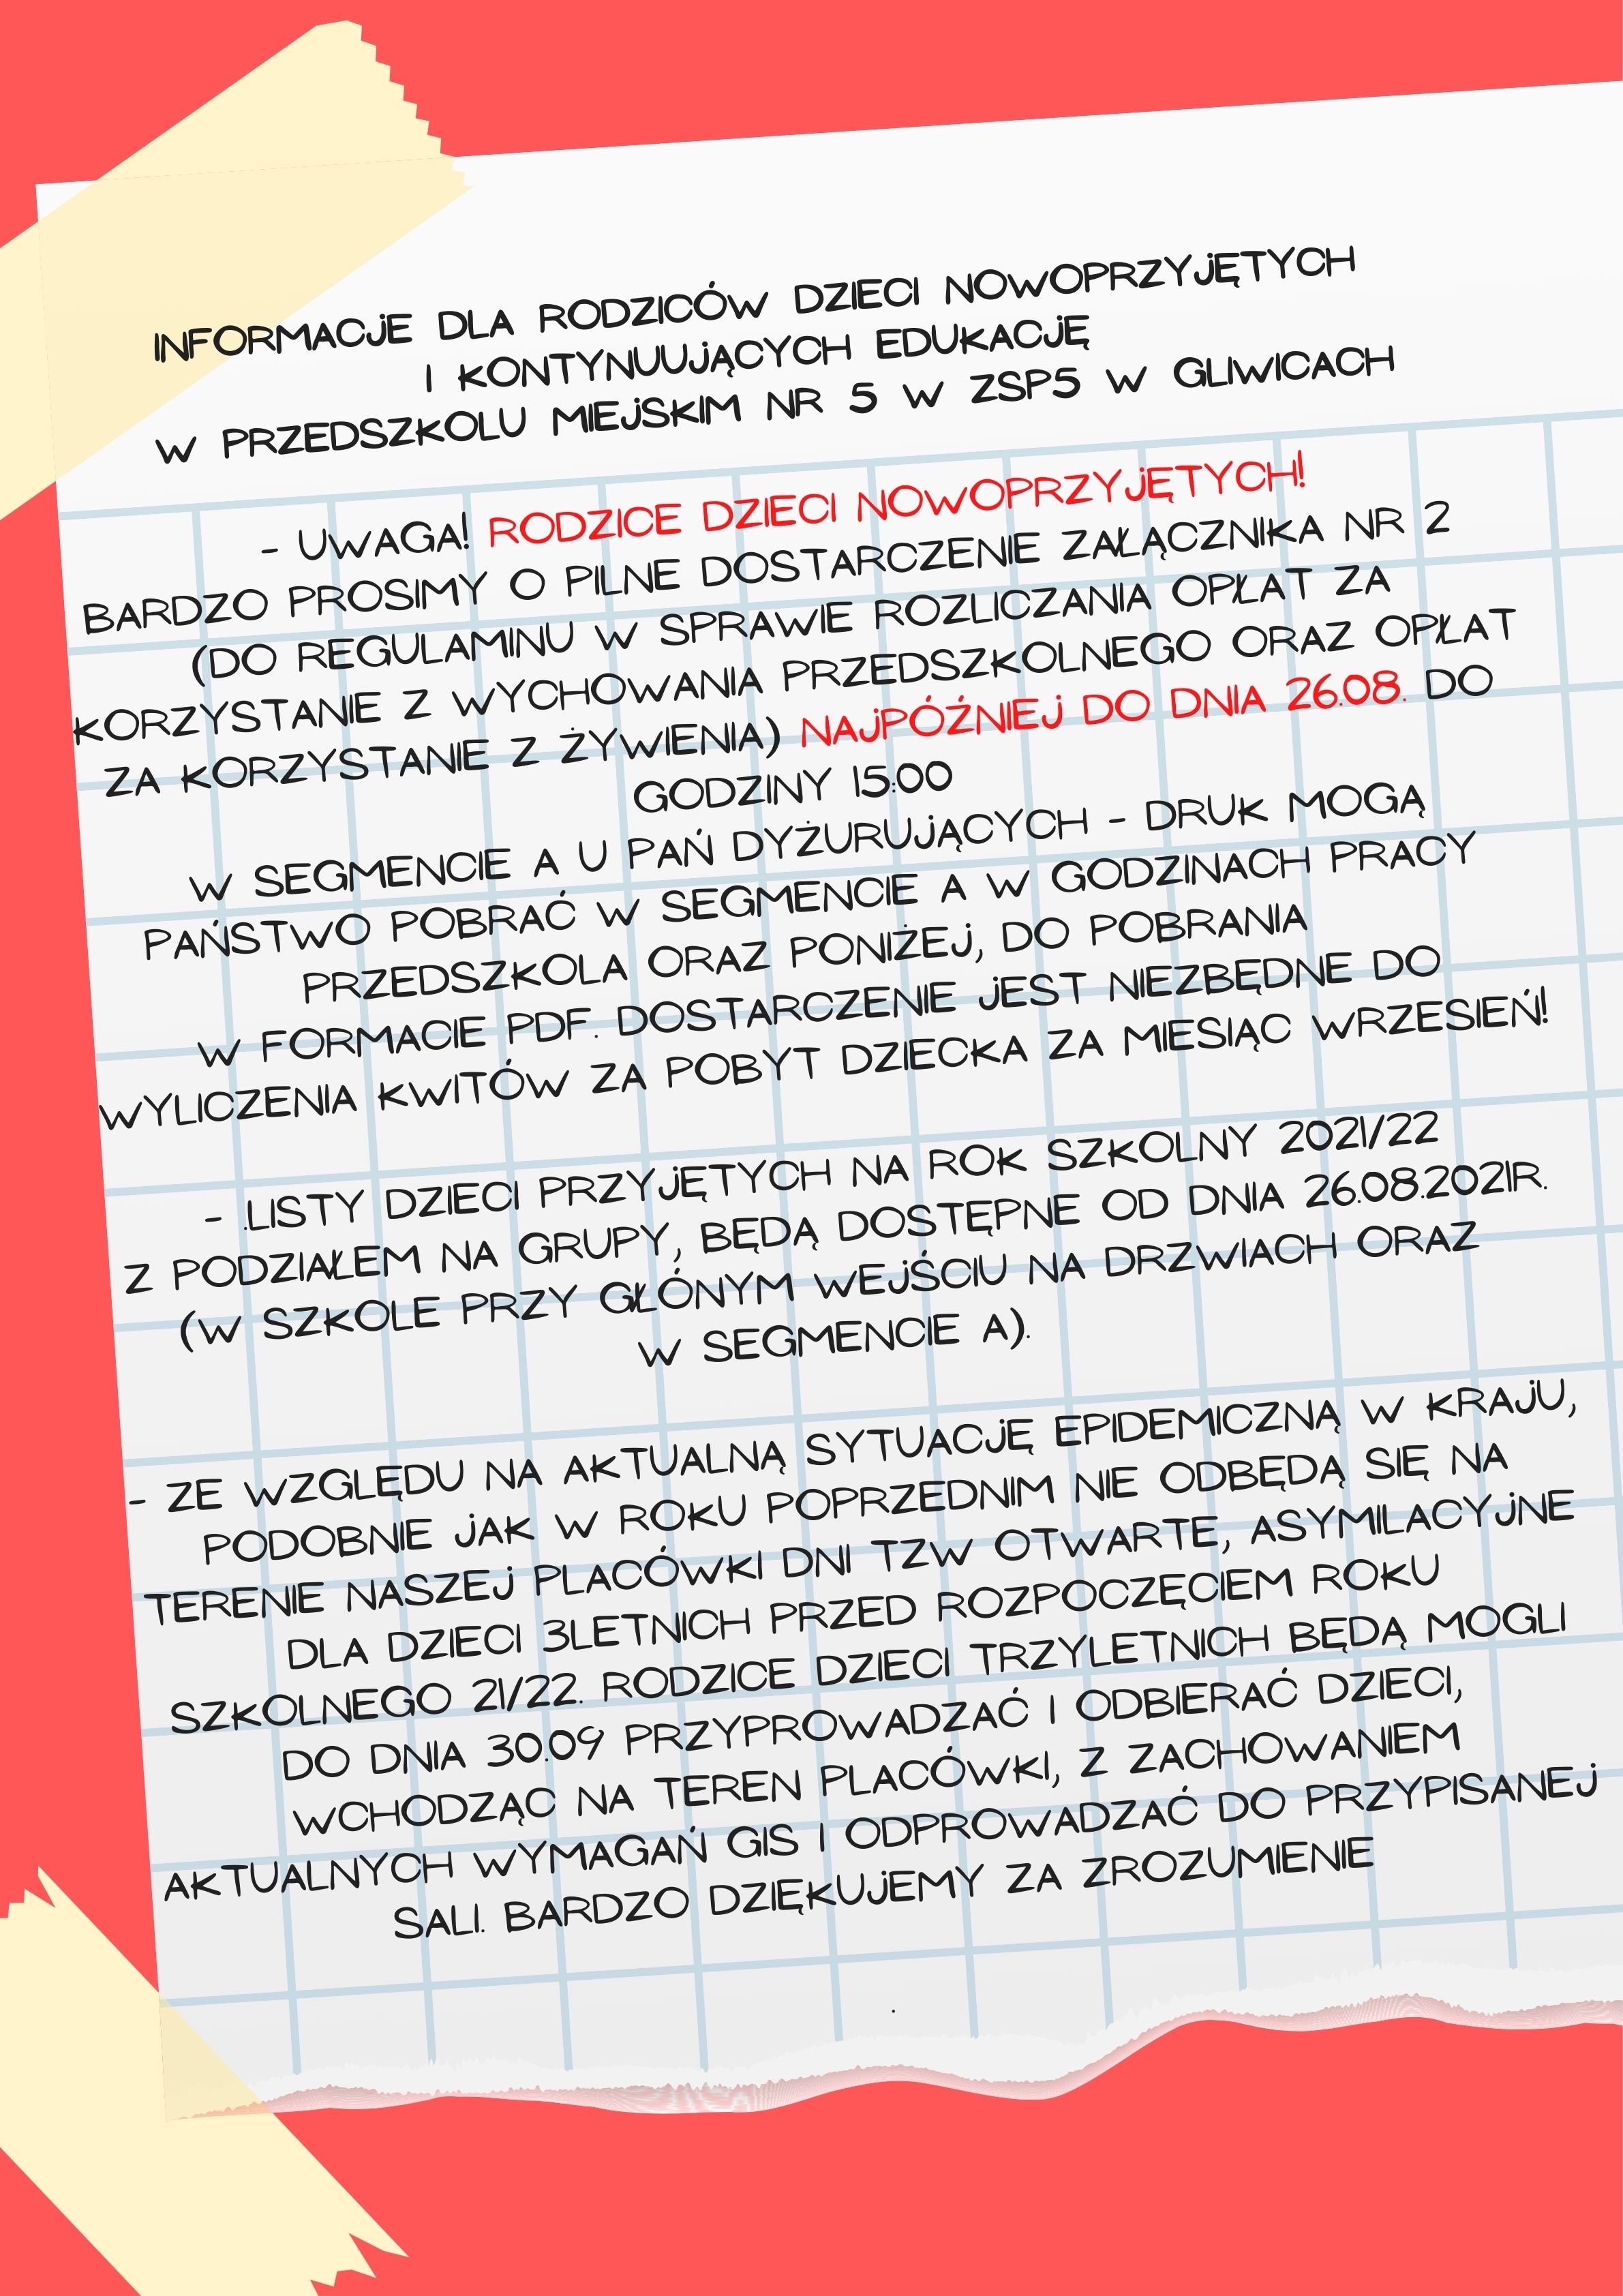 INFORMACJE DLA RODZICÓW DZIECI NOWOPRZYJĘTYCH
I KONTYNUUJĄCYCH EDUKACJĘ
W PRZEDSZKOLU MIEJSKIM NR 5 W ZSP5 W GLIWICACH
- UWAGA! RODZICE DZIECI NOWOPRZYJĘTYCH!
BARDZO PROSIMY O PILNE DOSTARCZENIE ZAŁĄCZNIKA NR 2
(DO REGULAMINU W SPRAWIE ROZLICZANIA OPŁAT ZA
KORZYSTANIE Z WYCHOWANIA PRZEDSZKOLNEGO ORAZ OPŁAT
ZA KORZYSTANIE Z ŻYWIENIA) NAJPÓŹNIEJ DO DNIA 26.08. DO
GODZINY 15:00
W SEGMENCIE A U PAŃ DYŻURUJĄCYCH - DRUK MOGĄ
PAŃSTWO POBRAĆ W SEGMENCIE A W GODZINACH PRACY
PRZEDSZKOLA ORAZ PONIŻEJ, DO POBRANIA
W FORMACIE PDF. DOSTARCZENIE JEST NIEZBĘDNE DO
WYLICZENIA KWITÓW ZA POBYT DZIECKA ZA MIESIĄC WRZESIEŃ!
- .LISTY DZIECI PRZYJĘTYCH NA ROK SZKOLNY 2021/22
Z PODZIAŁEM NA GRUPY, BĘDĄ DOSTĘPNE OD DNIA 26.08.2021R.
(W SZKOLE PRZY GŁÓNYM WEJŚCIU NA DRZWIACH ORAZ
W SEGMENCIE A).
- ZE WZGLĘDU NA AKTUALNĄ SYTUACJĘ EPIDEMICZNĄ W KRAJU,
PODOBNIE JAK W ROKU POPRZEDNIM NIE ODBĘDĄ SIĘ NA
TERENIE NASZEJ PLACÓWKI DNI TZW OTWARTE, ASYMILACYJNE
DLA DZIECI 3LETNICH PRZED ROZPOCZĘCIEM ROKU
SZKOLNEGO 21/22. RODZICE DZIECI TRZYLETNICH BĘDĄ MOGLI
DO DNIA 30.09 PRZYPROWADZAĆ I ODBIERAĆ DZIECI,
WCHODZĄC NA TEREN PLACÓWKI, Z ZACHOWANIEM
AKTUALNYCH WYMAGAŃ GIS I ODPROWADZAĆ DO PRZYPISANEJ
SALI. BARDZO DZIĘKUJEMY ZA ZROZUMIENIE
.